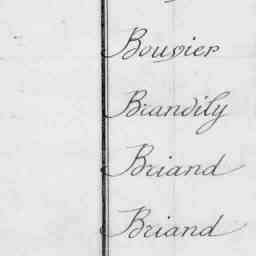 Bouvier
Brandily
Briand
Briand